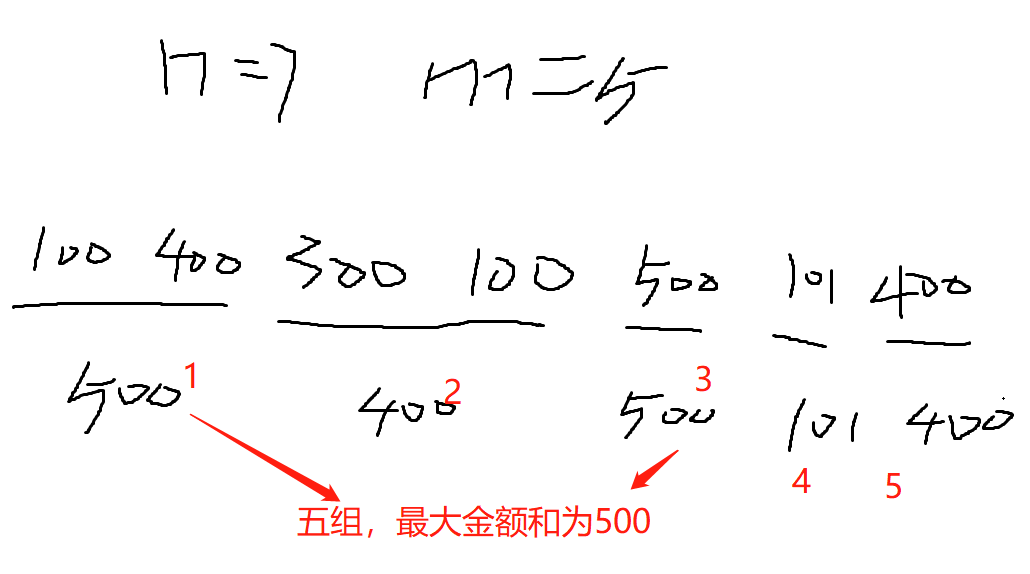 n=7 m=5
100 400 300 100 500 101 400
1 2 3
500 400 500 101 400
4 5
五组，最大金额和为500